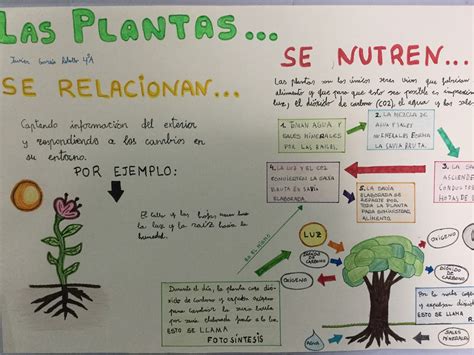 LAS PLANTAS...
4ºA
SE RELACIONAN...
Captando información del exterior
y respondiendo a los cambios en
su entorno.
POR EJEMPLO:
El tallo y las hojas
la luz y la raíz hacia la
humedad.
SE NUTREN...
Las plantas son los únicos seres vivos que fabrican
alimento y que para que esto sea posible es
luz, el dióxido de carbono (CO2), el agua y las sales
1. TOMAN AGUA Y
SALES MINERALES
POR LAS RAÍCES.
2. LA MEZCLA DE
AGUA Y SALES
MINERALES FORMA
LA SAVIA BRUTA.
3. LA SAVIA
ASCIENDE
CONDUCTOS
HOJAS DE
4. LA LUZ Y EL CO2
CONVIERTEN LA SAVIA
BRUTA EN SAVIA
ELABORADA.
5. LA SAVIA
ELABORADA SE
REPARTE POR
TODA LA PLANTA
PARA SUMINISTRAR
ALIMENTO.
LUZ
DIÓXIDO DE
CARBONO
OXÍGENO
OXÍGENO
DIÓXIDO
DE
CARBONO
Durante el día, la planta coge dió-
xido de carbono y expulsa oxígeno
para
ser elaborada junto a la luz.
ESTO SE LLAMA
FOTOSÍNTESIS
Por la noche
y expulsan
ESTO SE LLAMA
AGUA
SALES